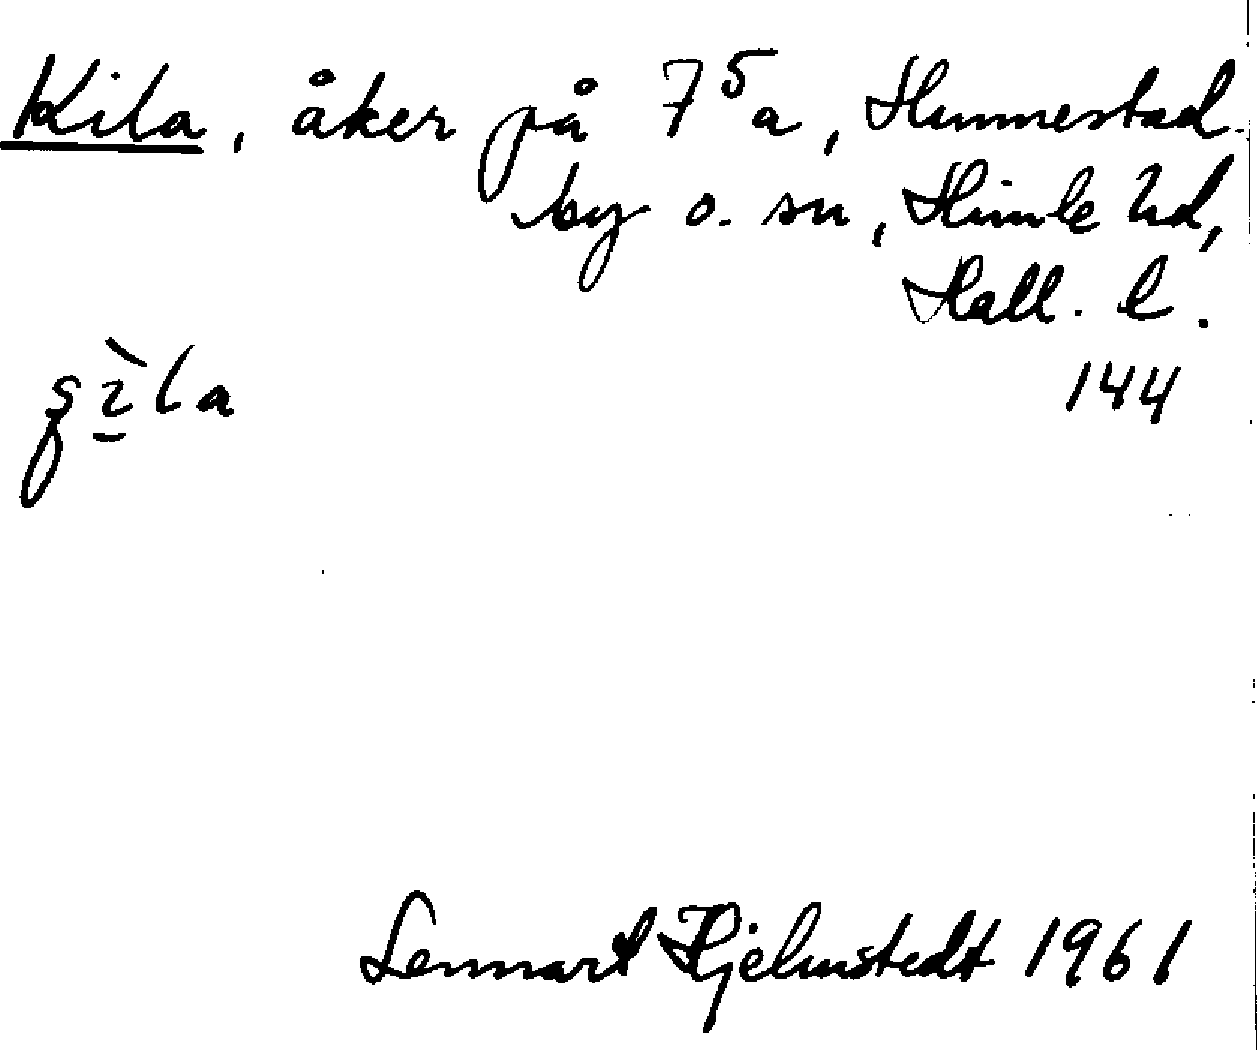 Kila, åker på 7⁵a, Hunnestad
by o. sn, Himle hd,
Hall. l.
144
Lennart Hjelmstedt 1961